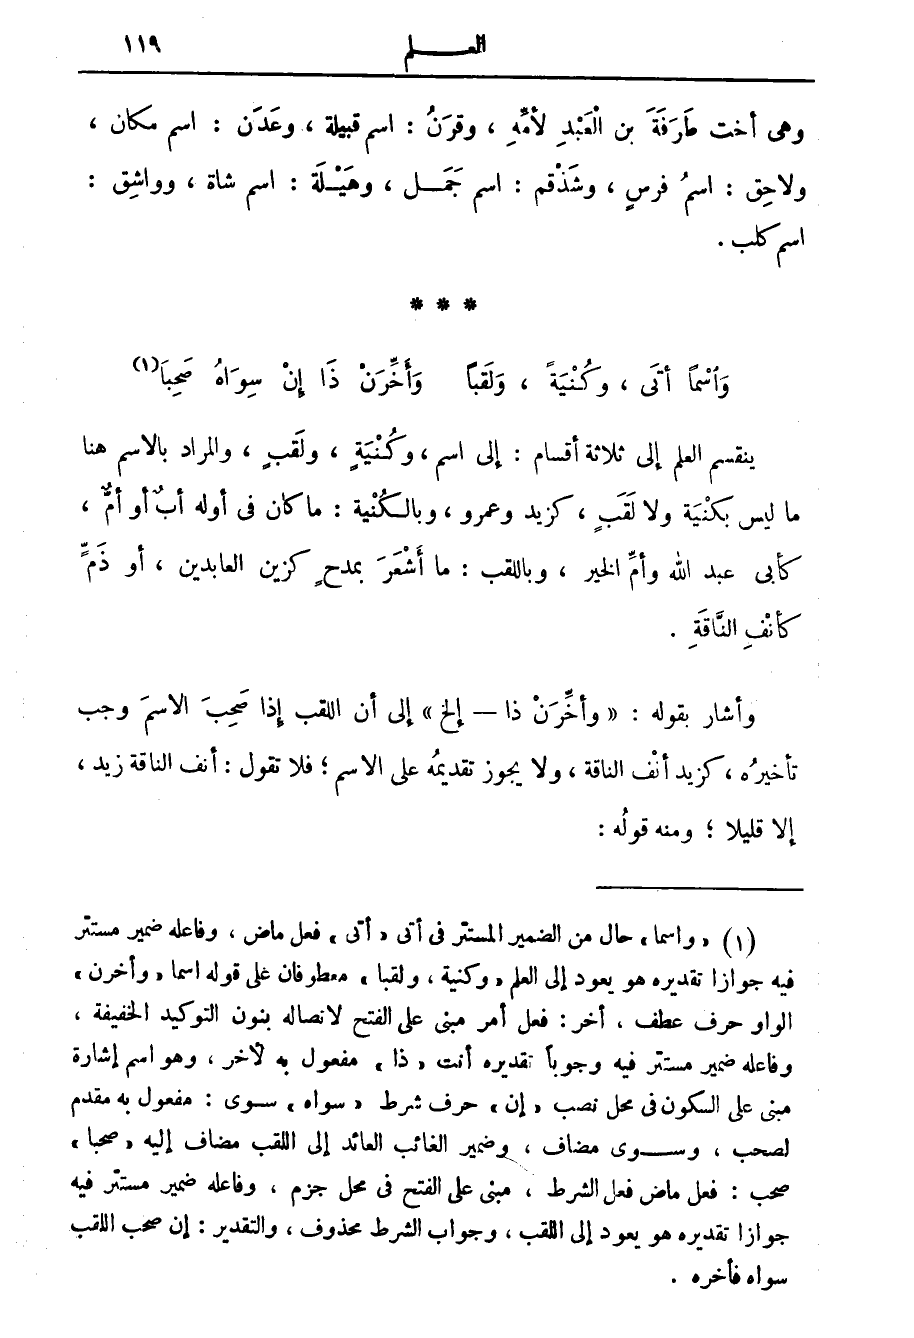 العـــلم ١١٩
وهى أخت طَرَفَةَ بن الْعَبْدِ لأمِّهِ ، وقَرَنُ : اسم قبيلة ، وعَدَن : اسم مكان ،
ولاحِق : اسمُ فرسٍ ، وشَذْقم : اسم جَمَـــل ، وهَيْـلَة : اسم شاة ، وواشِق :
اسم كلب .
* * *
وَاسْمًا أتَى ، وكُنْيَةً ، وَلَقَبَا وَأَخِّرَنْ ذَا إِنْ سِوَاهُ صَحِبَا(١)
ينقسم العلم إلى ثلاثة أقسام : إلى اسم ، وكُنْيَةٍ ، ولَقَبٍ ، والمراد بالاسم هنا
ما ليس بكنْيَة ولا لَقَبٍ ، كزيد وعمرو ، وبالـكُنْية : ما كان فى أوله أبٌ أو أمٌّ ،
كأبى عبد الله وأمِّ الخير ، وباللقب : ما أَشْعَرَ بمدحٍ كزين العابدين ، أو ذَمٍّ
كأنْفِ النَّاقَةِ .
وأشار بقوله : « وأخِّرَنْ ذا — إلخ » إلى أن اللقب إذا صَحِبَ الاسمَ وجب
تأخيرُه ، كزيد أنْف الناقة ، ولا يجوز تقديمُه على الاسم ؛ فلا تقول : أنف الناقة زيد ،
إلا قليلا ؛ ومنه قولُه :
(١) « واسما » حال من الضمير المستتر فى أتى « أتى » فعل ماض ، وفاعله ضمير مستتر
فيه جوازا تقديره هو يعود إلى العلم « وكنية ، ولقبا » معطوفان على قوله اسما « وأخرن »
الواو حرف عطف ، أخر : فعل أمر مبنى على الفتح لاتصاله بنون التوكيد الخفيفة ،
وفاعله ضمير مستتر فيه وجوباً تقديره أنت « ذا » مفعول به لآخر ، وهو اسم إشارة
مبنى على السكون فى محل نصب « إن » حرف شرط « سواه » سوى : مفعول به مقدم
لصحب ، وســـوى مضاف ، وضمير الغائب العائد إلى اللقب مضاف إليه « صحبا »
صحب : فعل ماض فعل الشرط ، مبنى على الفتح فى محل جزم ، وفاعله ضمير مستتر فيه
جوازا تقديره هو يعود إلى اللقب ، وجواب الشرط محذوف ، والتقدير : إن صحب اللقب
سواه فأخره .